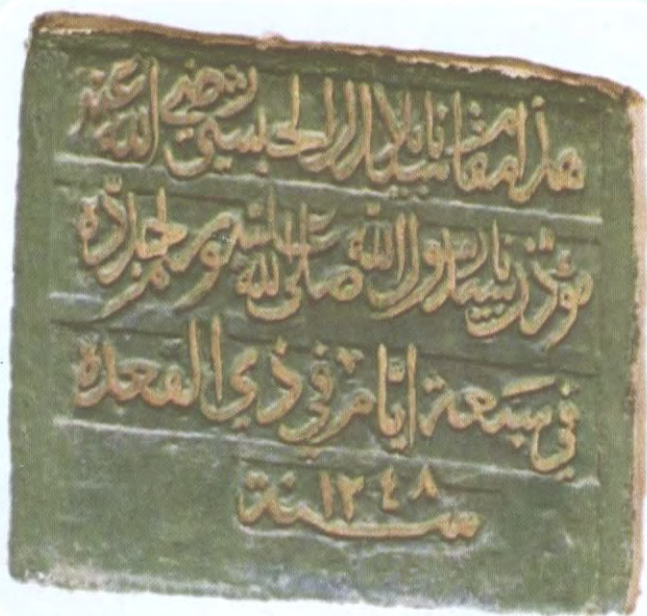 هذا مقام سيدنا بلال الحبشي رضي الله عنه
مؤذن سيدنا رسول الله صلى الله عليه وسلم جدده
في سبعة ايام في ذي القعدة
سنة ١٢٤٨